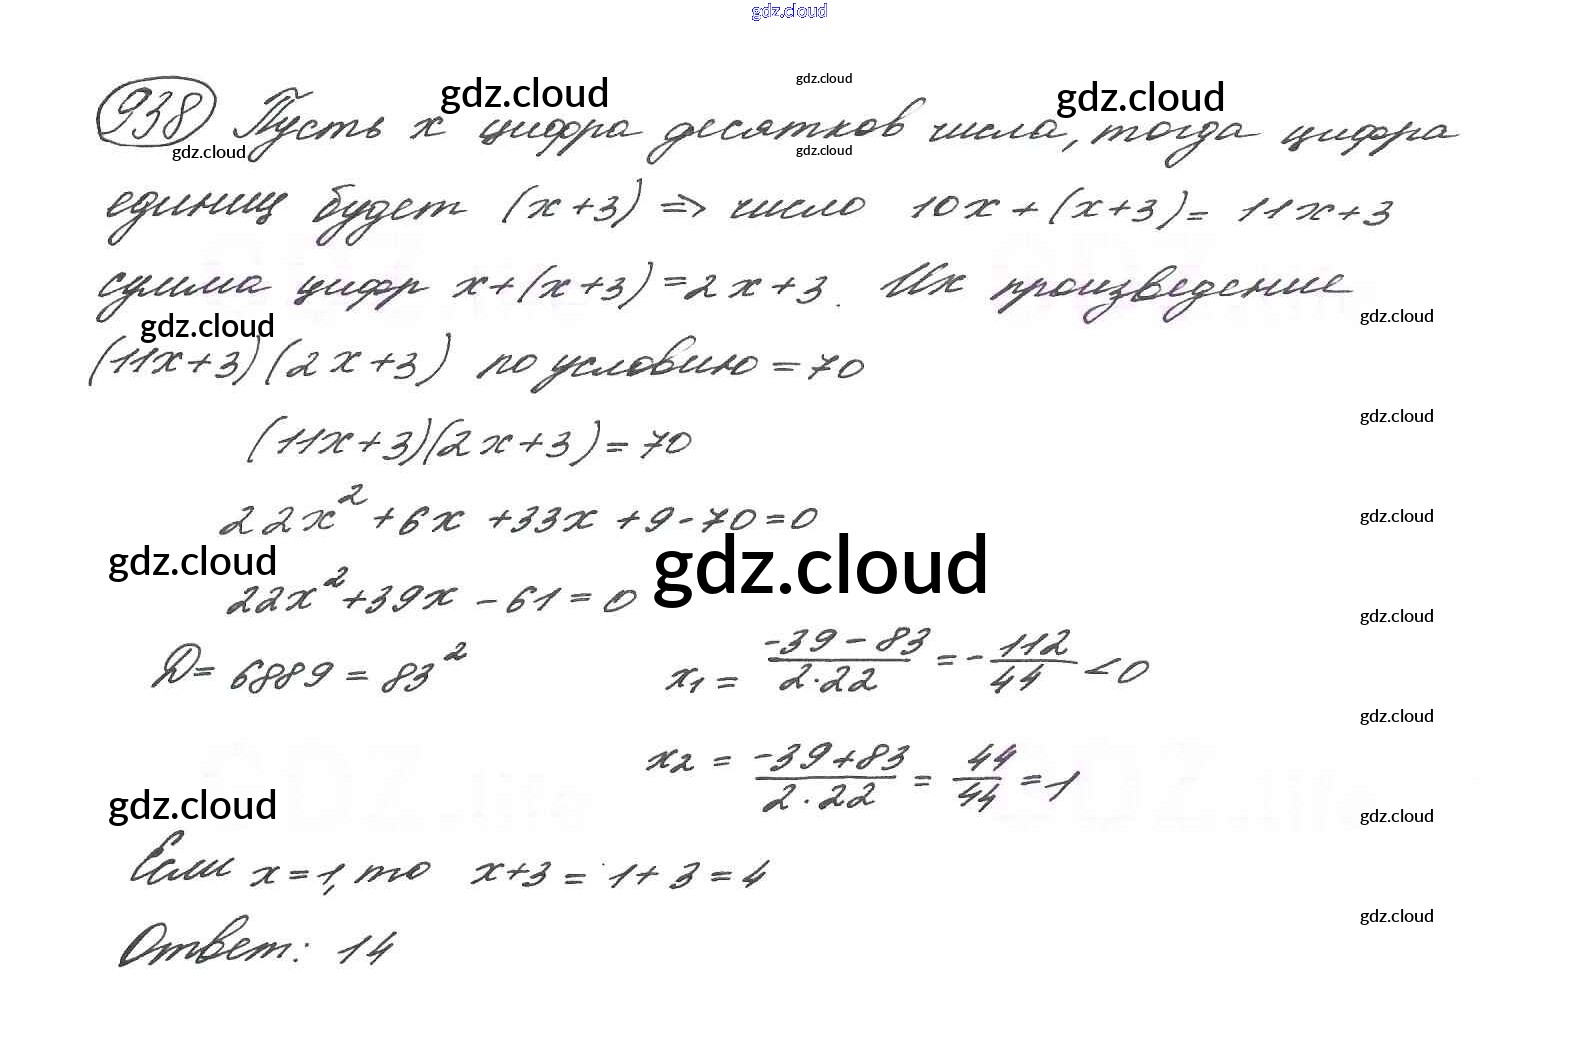 gdz.cloud
gdz.cloud
gdz.cloud
gdz.cloud
938 Пусть x цифра десятков числа, тогда цифра
gdz.cloud
gdz.cloud
единиц будет (x+3) => число 10x+(x+3)= 11x+3
сумма цифр x+(x+3)=2x+3. Их произведение
gdz.cloud
gdz.cloud
(11x+3)(2x+3) по условию =70
gdz.cloud
(11x+3)(2x+3)=70
22x² +6x +33x +9-70=0
gdz.cloud
gdz.cloud
gdz.cloud
22x²+39x -61=0
gdz.cloud
D= 6889 = 83² x₁ = (-39-83)/(2·22) = -112/44 <0
gdz.cloud
x₂ = (-39+83)/(2·22) = 44/44 =1
gdz.cloud
gdz.cloud
Если x=1, то x+3= 1+3=4
gdz.cloud
Ответ: 14